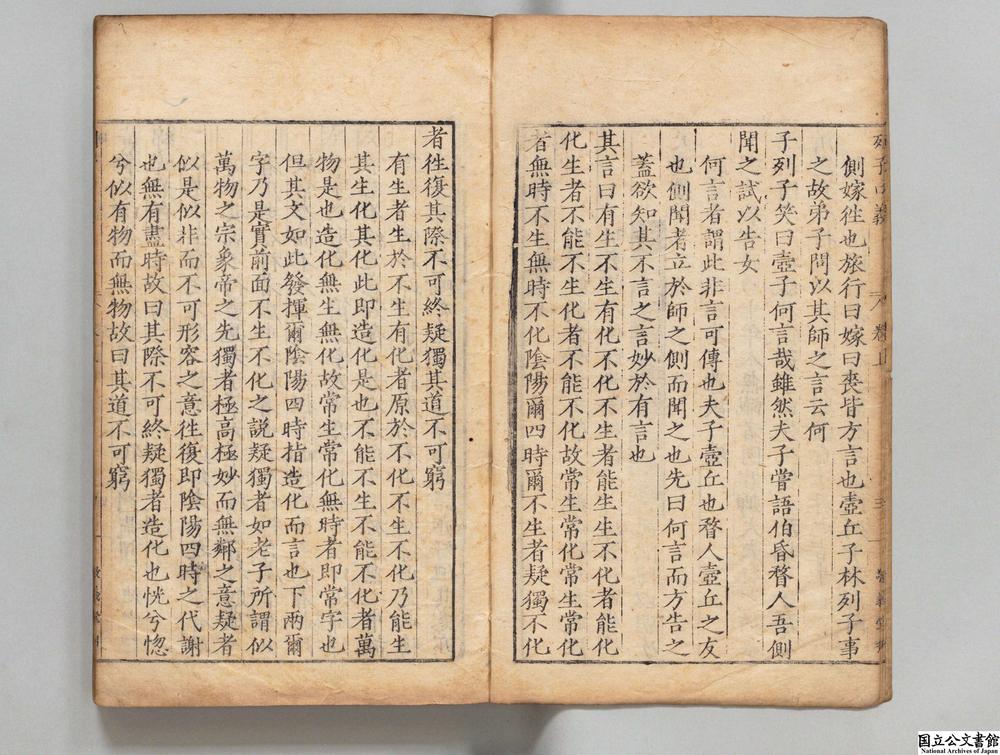 列子口義 卷上
側嫁徃也旅行曰嫁曰喪皆方言也壺丘子林列子事
之故弟子問以其師之言云何
子列子笑曰壺子何言哉雖然夫子嘗語伯昏瞀人吾側
聞之試以告女
何言者謂此非言可傳也夫子壺丘也瞀人壺丘之友
也側聞者立於師之側而聞之也先曰何言而方告之
蓋欲知其不言之言妙於有言也
其言曰有生不生有化不化不生者能生生不化者能化
化生者不能不生化者不能不化故常生常化常生常化
者無時不生無時不化陰陽爾四時爾不生者疑獨不化
者徃復其際不可終疑獨其道不可窮
有生者生於不生有化者原於不化不生不化乃能生
其生化其化此即造化是也不能不生不能不化者萬
物是也造化無生無化故常生常化無時者即常字也
但其文如此發揮爾陰陽四時指造化而言也下兩爾
字乃是實前面不生不化之説疑獨者如老子所謂似
萬物之宗象帝之先獨者極高極妙而無鄰之意疑者
似是似非而不可形容之意徃復即陰陽四時之代謝
也無有盡時故曰其際不可終疑獨者造化也恍兮惚
兮似有物而無物故曰其道不可窮
国立公文書館
National Archives of Japan